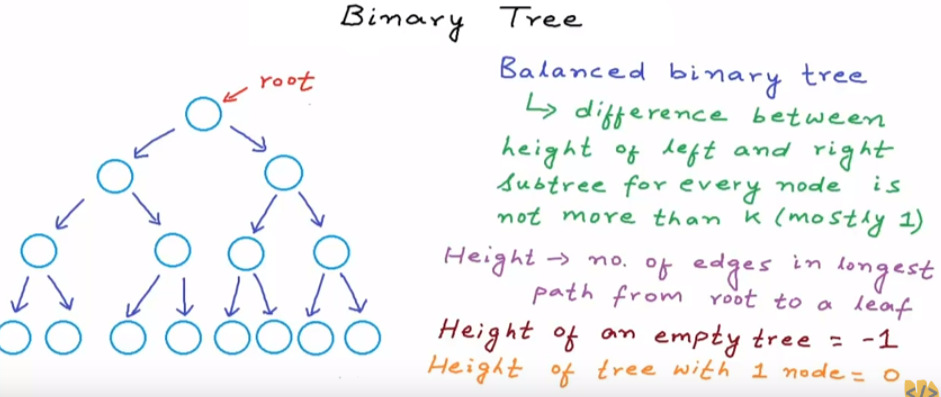 Binary Tree
root
Balanced binary tree
↳ difference between
height of left and right
subtree for every node is
not more than k (mostly 1)
Height → no. of edges in longest
path from root to a leaf
Height of an empty tree = -1
Height of tree with 1 node = 0
</>